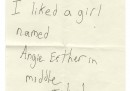 I liked a girl
named
Angie Eether in
middle